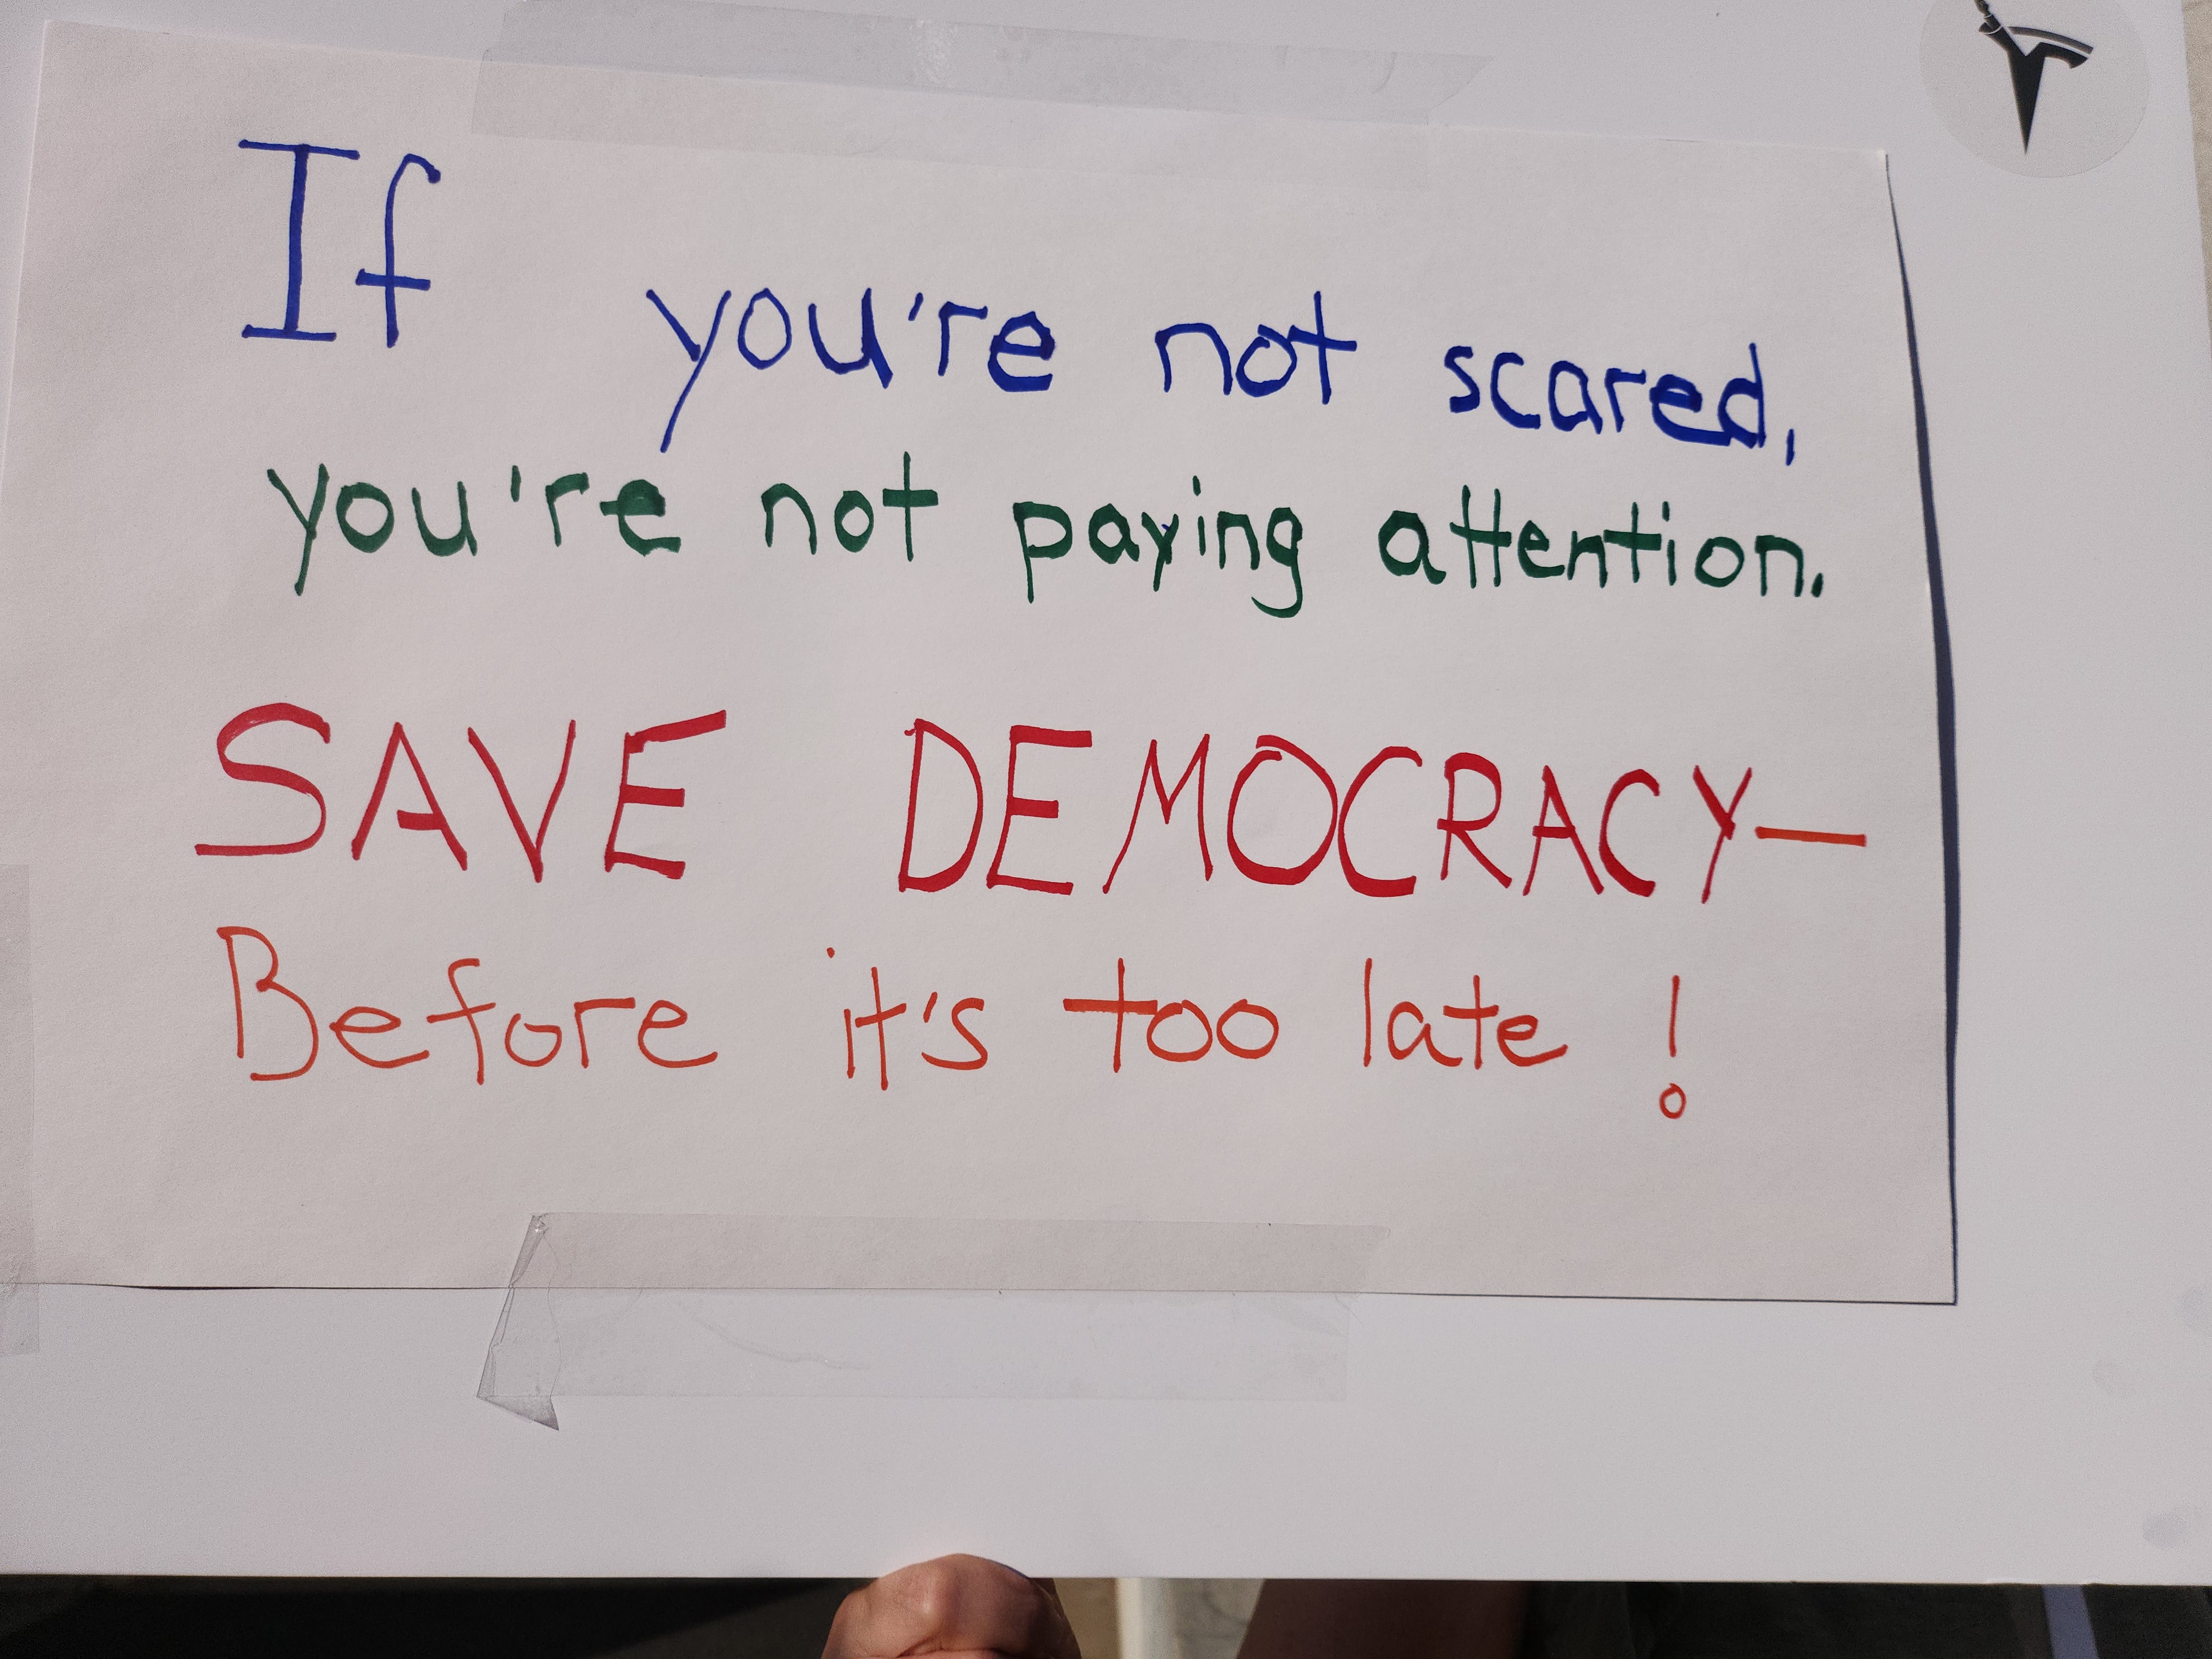 If you're not scared,
you're not paying attention.
SAVE DEMOCRACY—
Before it's too late!